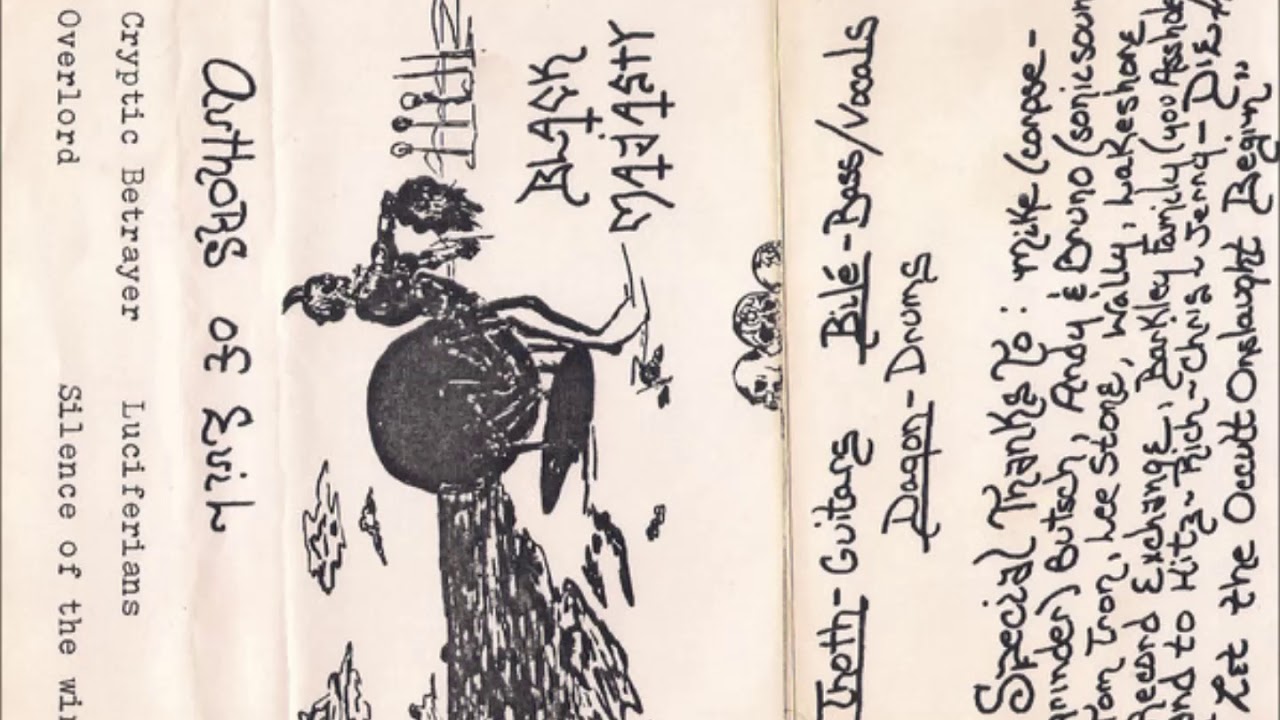 Authors of Evil
Cryptic Betrayer Luciferians
Overlord Silence of the
BLACK
MAJESTY
Thoth- Guitars Bilé-Bass/Vocals
Dagon- Drums
Special Thanks To: Mike (corpse-
grinder) Butsch, Andy & Bruno (sonic soun
Tom Tron, Lee Stone, Wally, Lakeshore
Record Exchange, Barkley Family (you
and to Hitz~Rich~Chris Jenny- DIE
Let the Occult Onslaught Begin"